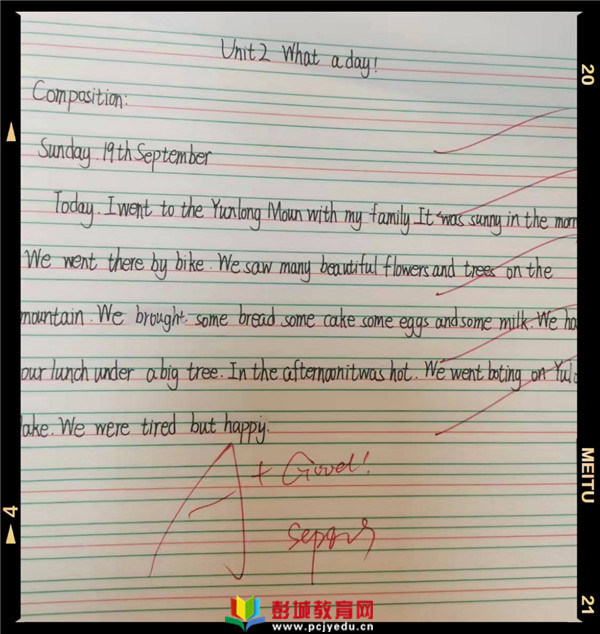 Unit2 What a day!
Composition:
Sunday. 19th September
Today. I went to the Yunlong Moun with my family It was sunny in the morn
We went there by bike. We saw many beautiful flowers and trees on the
mountain. We brought some bread some cake some eggs and some milk. We ha
our lunch under a big tree. In the afternoon it was hot. We went boting on Yul
lake. We were tired but happy.
A+ Good!
20
MEITU
21
4
彭城教育网
www.pcjyedu.cn